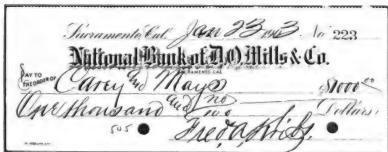 Sacramento, Cal. Jan 23 1903. No 223
National Bank of D.O. Mills & Co.
SACRAMENTO, CAL.
PAY TO THE ORDER OF Carey and Mays $1000.00
One thousand and no/100 Dollars
505